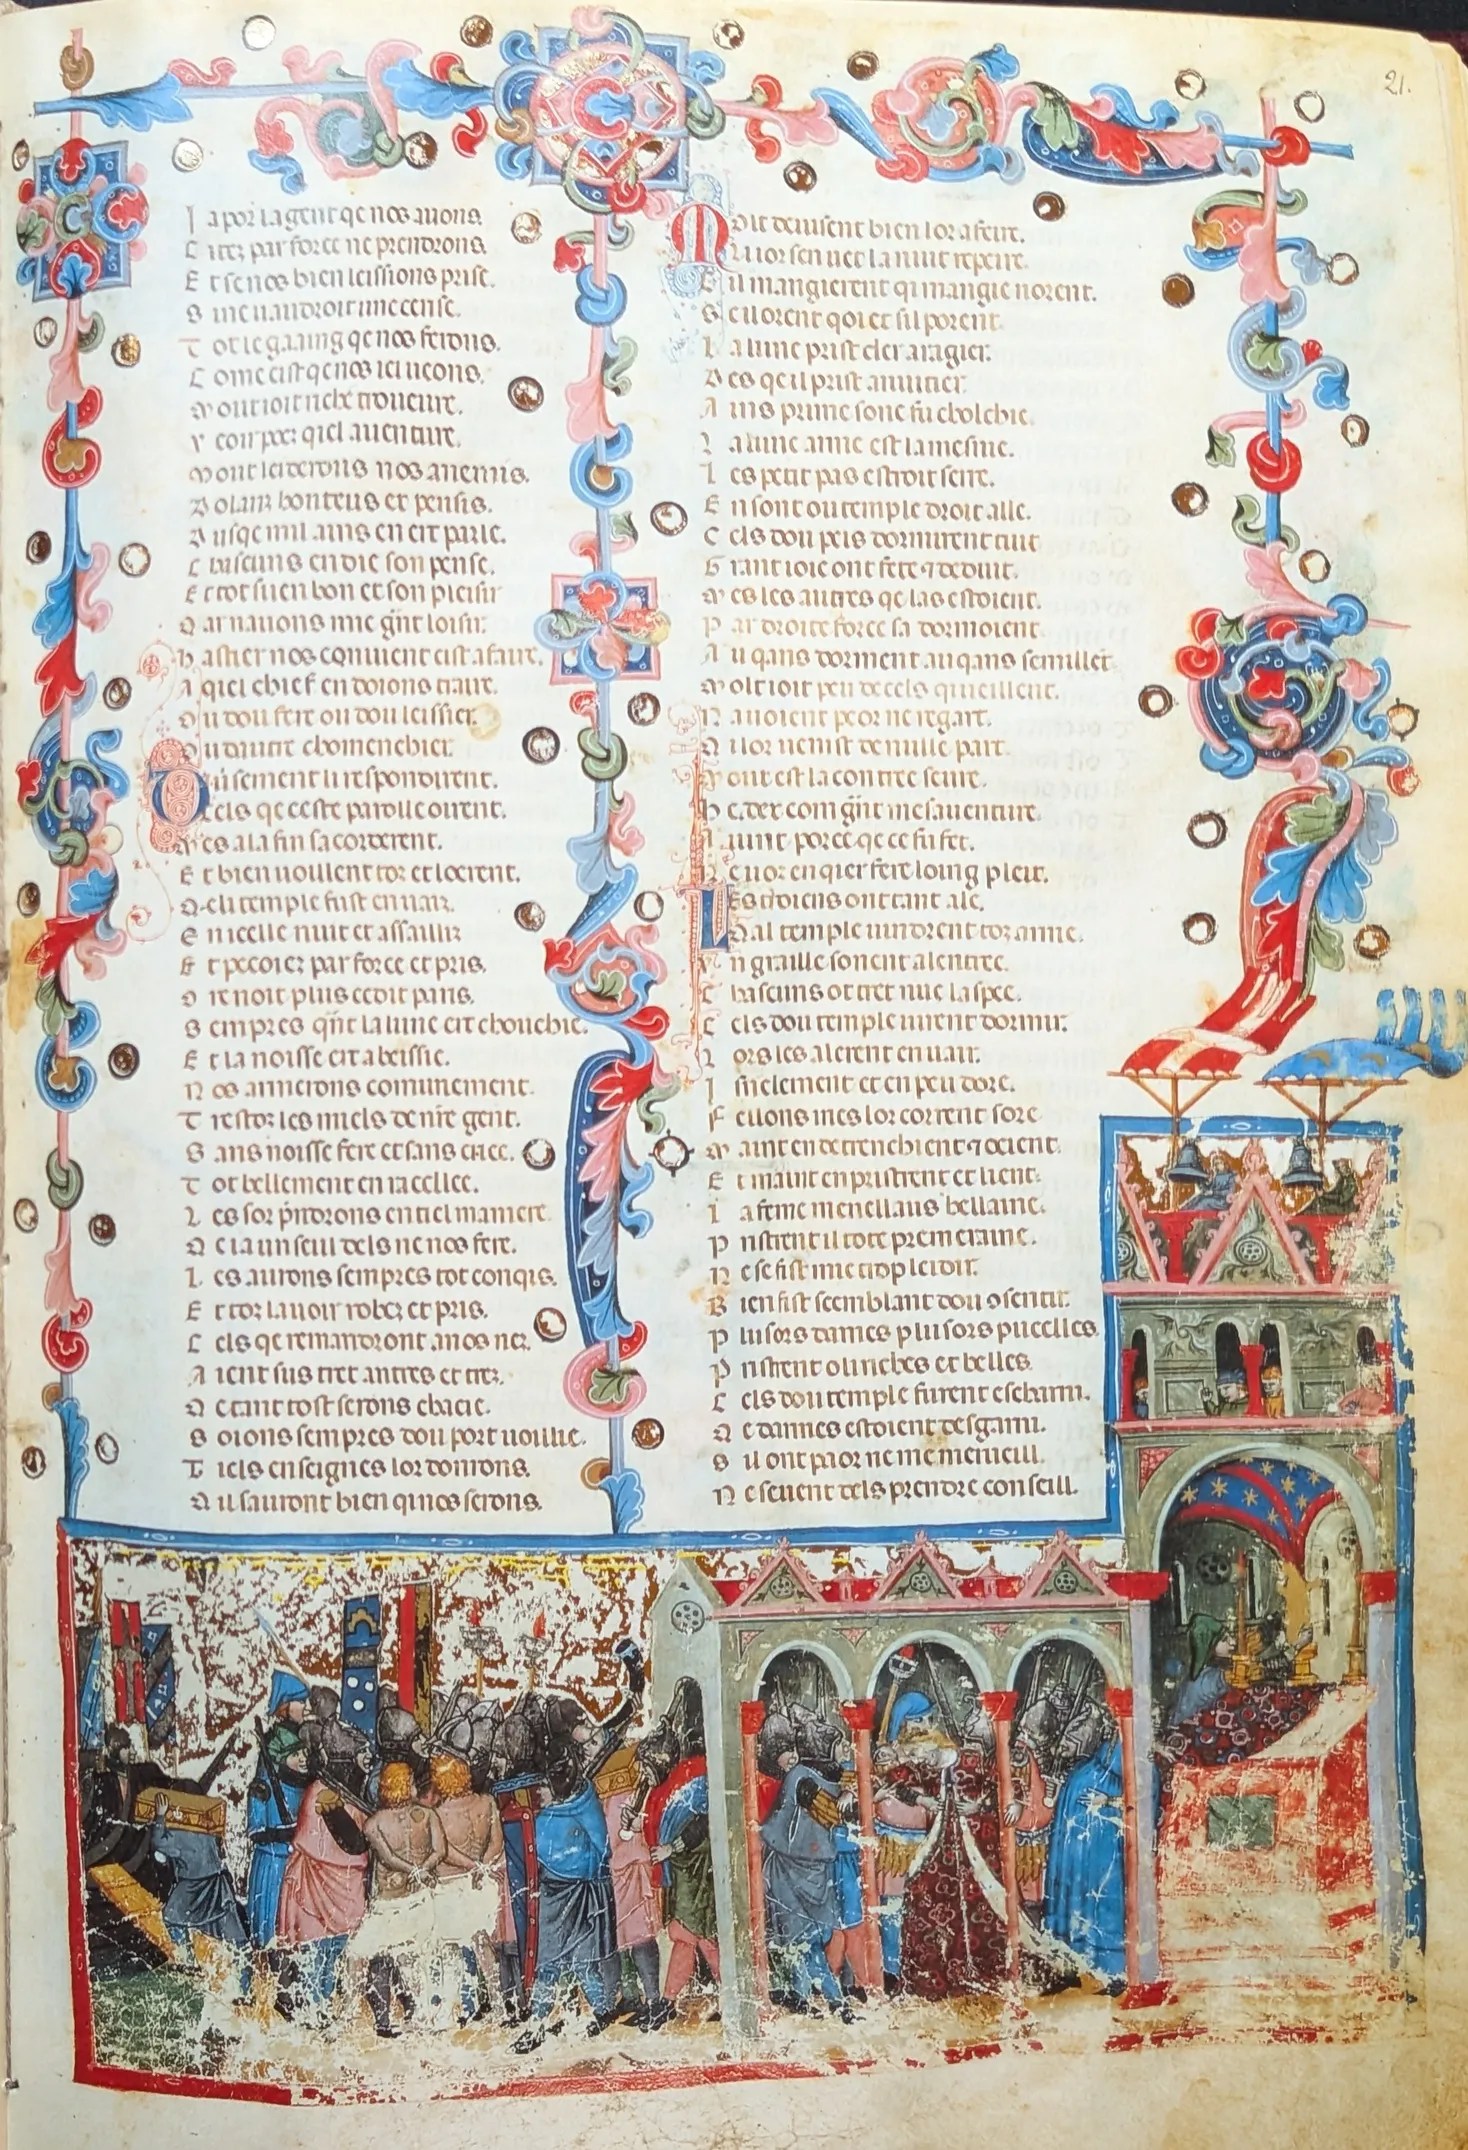 21.
I a por la gent qe nos auons
C itez par force ne prendrons.
E t se nos bien leissions prise.
S me uaudroit une cense.
T ot le gaaing qe nos ferons.
C ome cist qe nos ici ueons.
M out i oit riche troueure.
V eoir poez qiel auenture.
M out leiderons nos anemis.
D olanz honteus et pensis.
D usqe mil anz en ert parle.
C hascuns en die son pense.
E t tot suen bon et son pleisir
Q ar nauons mie gnt loisir.
H astier nos conuient cist afaire.
A qiel chief en doions traire.
O u dou fere ou dou leissier.
O u dautre chomenchier.
D iuersement li respondirent.
C els qe ceste parolle oirent.
M es a la fin sacorderent.
E t bien uoillent toz et loerent.
Q e li temple fust enuaiz.
E n icelle nuit et assailliz
E t pecoiez par force et pris.
O re noit plus ce dit paris.
S empres qnt la lune ert chouchie.
E t la noisse ert abeissie.
N os armerons comunement.
T restoz les miels de nre gent.
S anz noisse fere et sans criee.
T ot bellement en racellee.
L es sorprndrons en tiel maniere
Q e ia un seul dels ne nos fere.
L es aurons sempres tot conqis.
E t toz lauoir robez et pris.
C els qe remandront a nos nez.
A ient sus tret antres et trez.
Q e tant tost serons chacie.
S oions sempres dou port uoillie.
T iels enseignes lor donrons.
Q il sauront bien qi nos serons.
M olt deuisent bien lor afeire.
A u ior sen uet la nuit repeire.
C il mangierent qi mangie norent.
S e uorent qoi et sil porent.
L a lune prist cler a ragier.
D es qe il prist anuitier.
A ins prime sone fu cholchie.
L a lune anne est la mesine.
L es petit pas estroit serre.
E n sont ou temple droit alle.
C els dou peis dormirent tuit
G rant ioie ont fete 7 deduit.
M es les autres qe las estoient.
P ar droite force la dormoient.
A uqans dorment auqans semillet.
M olt i oit peu de cels qi ueillent.
N auoient peor ne regart.
Q i lor uenist de nulle part.
M out est la contree seure.
H e dex com gnt mesauenture.
A uint porce qe ce fu fet.
N e uoz en qier fere loing pleit.
L es troiens ont tant ale.
Q al temple uindrent toz arme.
V n graille sonent a lentree.
C hascuns ot tret nue laspee.
C els dou temple uirent dormir.
L ors les alerent enuair.
I snelement et en peu dore.
F ellons mes lor corrent sore
M aint en detrenchient 7 ocient.
E t maint en pristrent et lient.
L a feme menellaus bellaine.
P ristrent il tote premeraine.
N e se fist mie trop leidir.
B ien fist seemblant dou 9sentir.
P lusors dames plusors pucelles.
P ristrent oli riches et belles.
C els dou temple furent escharni.
Q e darmes estoient desgarni.
S il ont paor ne me merueill.
N e seuent dels prendre conseill.